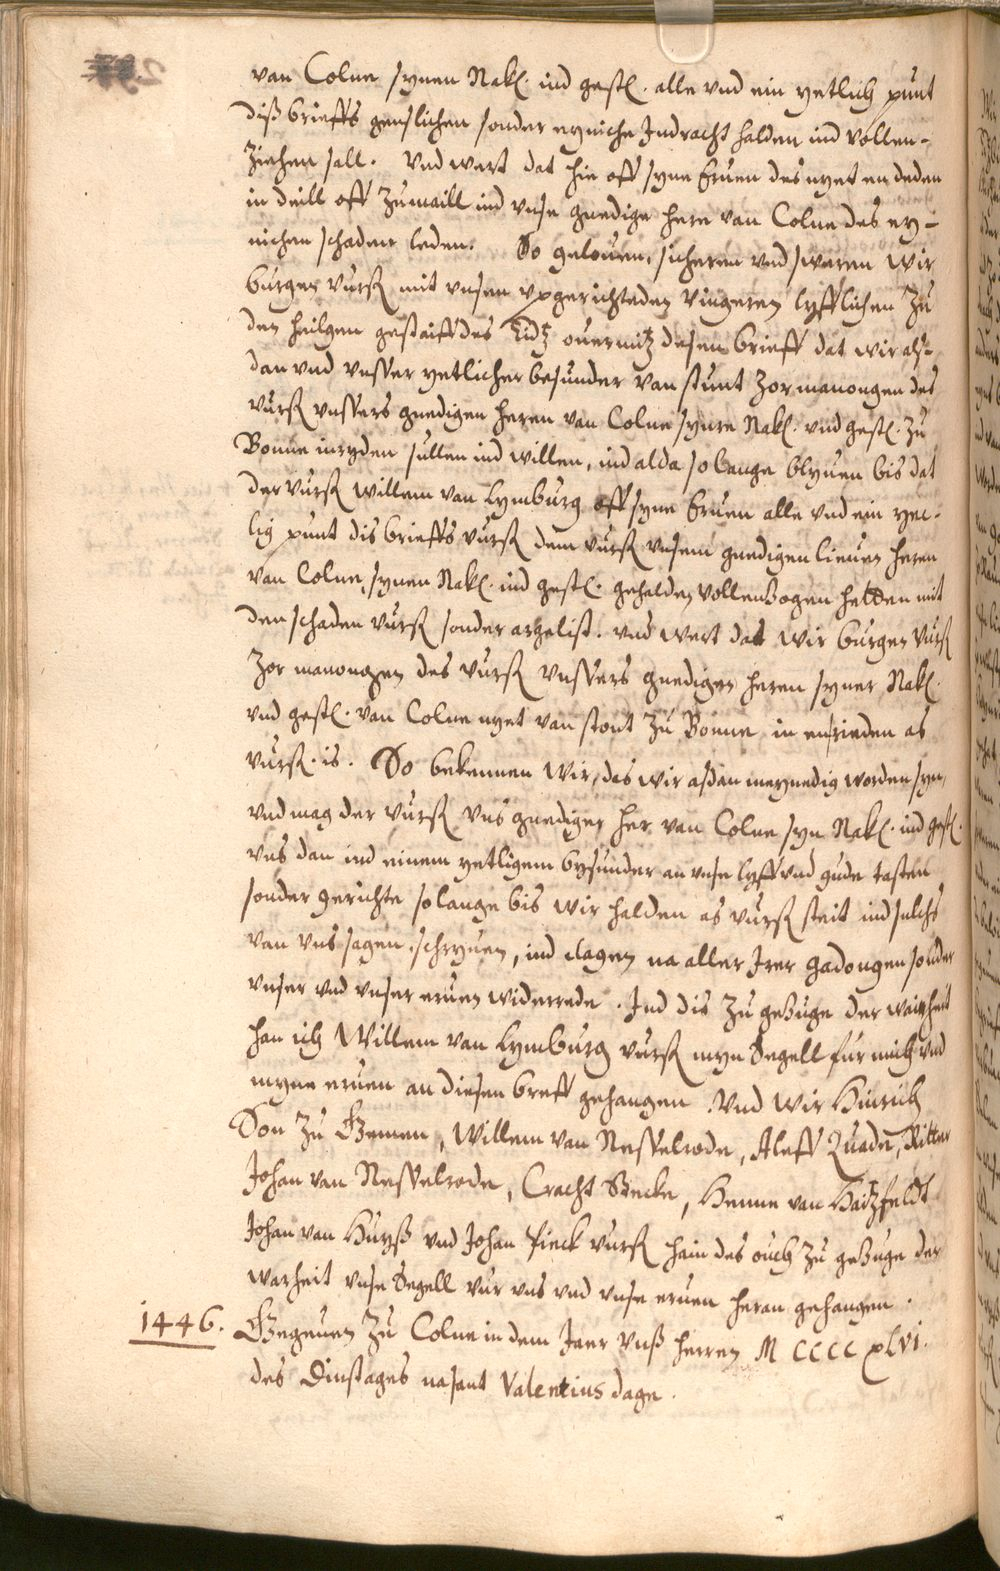 van Colne synen Nak. ind gest. alle vnd ein yetlich punt
diß brieffs genslichen sonder eyniche Indracht halden ind vollen-
ziehen sall. Vnd wert dat hie off syne Eruen des nyet en deden
in deill off zumaill ind vnse gnedige here van Colne des ey-
nichen schaden leden. So gelouen, sicheren vnd sweren wir
burgen vurß mit vnsen vpgerichteden vingeren lyfflichen zu
den heilgen gestaiffdes Eidtz ouermitz desen brieff dat wir als-
dan vnd vnsser yetlicher besunder van stunt zor manongen des
vurß vnssers gnedigen heren van Colne synre Nak. vnd gest. zu
Bonne inryden sullen ind willen, ind alda so lange blyuen bis dat
der vurß Willem van Lymburg off syne Eruen alle vnd ein yet-
lig punt dis brieffs vurß dem vurß vnsem gnedigen lieuen heren
van Colne, synen Nak. ind gest. gehalden vollenzogen hetten mit
den schaden vurß sonder argelist. vnd wert dat wir burgen vurß
zor manongen des vurß vnssers gnedigen heren syner Nak.
vnd gest. van Colne nyet van stont zu Bonne in enrieden as
vurß. is. So bekennen wir, des wir asdan meynedig worden syn,
vnd mag der vurß vns gnediger her van Colne syn Nak. ind gest.
vns dan ind einem yetligem bysunder an vnse lyff vnd gude tasten
sonder gerichte so lange bis wir halden as vurß steit ind sulchs
van vns sagen, schryuen, ind clagen na aller Irer gadongen sonder
vnser vnd vnser eruen widerrede. Ind dis zu gezuge der wairheit
han ich Willem van Lymburg vurß myn Segell fur mich vnd
myne eruen an diesen breff gehangen. Vnd wir Hinrich
Son zu Gemen, Willem van Nesselrode, Aleff Quade, Ritter
Johan van Nesselrode, Cracht Stecke, Henne van Hatzfeldt
Johan van Huyß vnd Johan Pieck vurß hain des ouch zu gezuge der
warheit vnse Segell vur vns vnd vnse eruen heran gehangen.
1446. Gegeuen zu Colne in dem Jaer vnß herren M CCCC xlvi.
des Dinstages na sant Valentius dage.